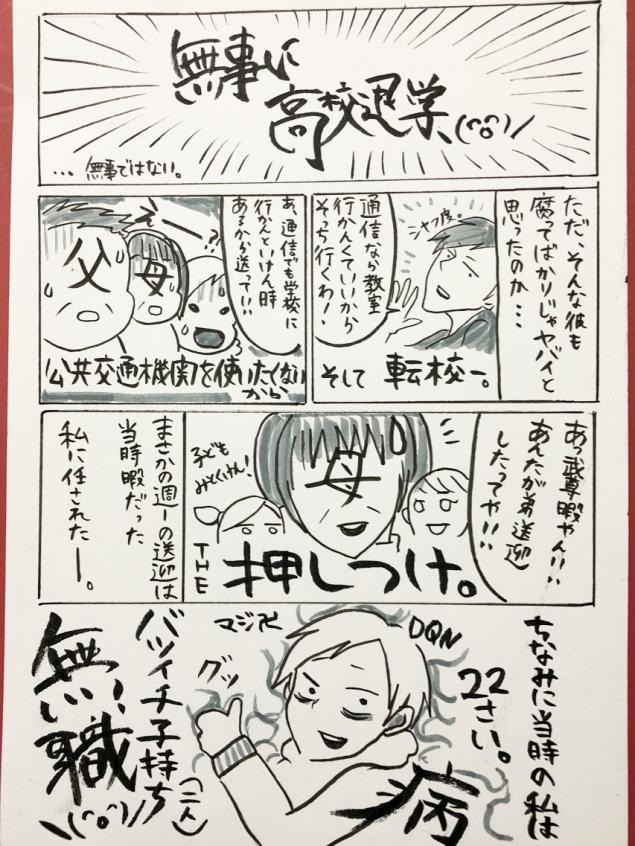 無事に
高校退学＼(^o^)／
… 無事ではない。
ただ、そんな彼も
腐ってばかりじゃヤバイと
思ったのか…
シャフ度。
通信なら教室
行かんくていいから
そっち行くわ!
そして 転校ー。
あ、通信でも学校に
行かんといけん時
あるから送って!!
えーー?
父
母
公共交通機関を使いたくない
から
あっ武尊暇やん!!
あんたが弟送迎
したってや!!
母
子ども
みとくけん!
THE
押しつけ。
まさかの週一の送迎は
当時暇だった
私に任されたー。
ちなみに当時の私は
22さい。
DQN
病
マジ卍
グッ
バツイチ子持ち
(二人)
無職
＼(^o^)／